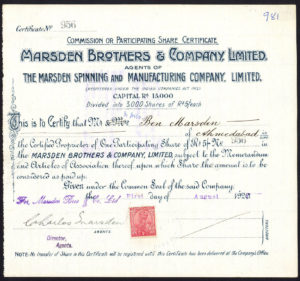 981
Certificate No 956
COMMISSION OR PARTICIPATING SHARE CERTIFICATE
MARSDEN BROTHERS & COMPANY, LIMITED.
AGENTS OF
THE MARSDEN SPINNING AND MANUFACTURING COMPANY, LIMITED.
(REGISTERED UNDER THE INDIAN COMPANIES ACT 1913)
CAPITAL Rs 15,000
Divided into 3,000 Shares of Rs 5/each
This is to Certify that Mr & Mrs Ben Marsden
of Ahmedabad
the Certified Proprietor of One Participating Share of Rs 5/- No 956 in
the MARSDEN BROTHERS & COMPANY, LIMITED subject to the Memorandum
and Articles of Association thereof upon which Share the amount is to be
considered as paid up.
Given under the Common Seal of the said Company
For Marsden Bros & Co. Ltd this First day of August 192
Charles Marsden
AGENTS
Director,
Agents.
NOTE:- No transfer of Share in this Certificate will be registered until this Certificate has been delivered at the Company's Office